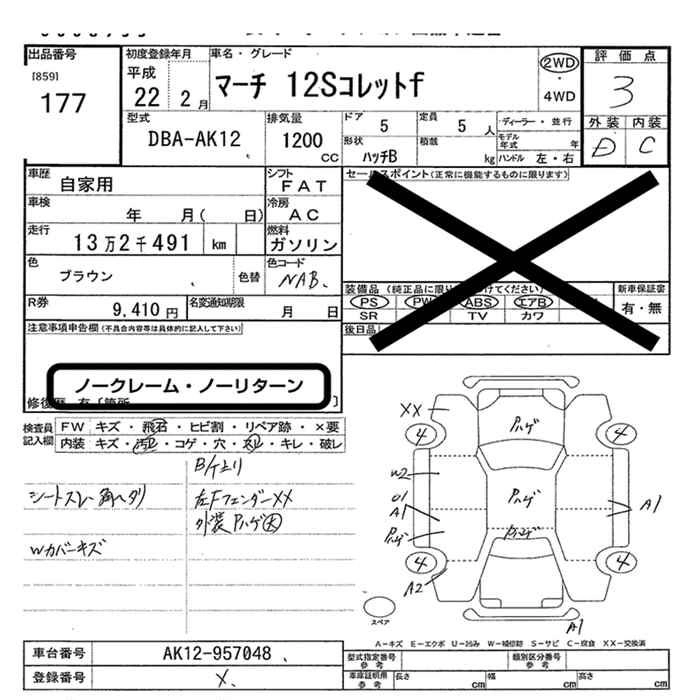 出品番号
[859]
177
初度登録年月
平成
22 2月
車名・グレード
マーチ 12Sコレットf
2WD
・
4WD
評価点
3
外装 内装
D C
型式
DBA-AK12
排気量
1200
CC
ドア
5
定員
5 人
形状
ハッチB
積載
kg
ディーラー・並行
モデル年式 年
ハンドル 左・右
車歴
自家用
シフト
FAT
車検
年 月( 日)
冷房
AC
走行
13万2千491 km
燃料
ガソリン
色
ブラウン
色替
色コード
NAB.
R券
9,410円
名変通知期限
月 日
セールスポイント(正常に機能するものに限ります)
装備品(純正品に限り
けてください)
PS PW ABS エアB
SR TV カワ
新車保証書
有・無
後日品
注意事項申告欄(不具合内容等は具体的に記入して下さい)
ノークレーム・ノーリターン
修復歴 有〔箇所 〕
検査員記入欄
FW キズ・飛石・ヒビ割・リペア跡・×要
内装 キズ・汚れ・コゲ・穴・スレ・キレ・破レ
シートスレ
Wカバーキズ
左Fフェンダーxx
外装Pハゲ大
XX
4
4
W2
A1
Pハゲ
A2
4
4
Pハゲ
Pハゲ
Pハゲ
A1
A1
スペア
A－キズ E－エクボ U－凹み W－補修跡 S－サビ C－腐食 XX－交換済
車台番号 AK12-957048
登録番号 X.
型式指定番号
参考
類別区分番号
参考
車庫証明用
参考
長さ cm
幅 cm
高さ cm